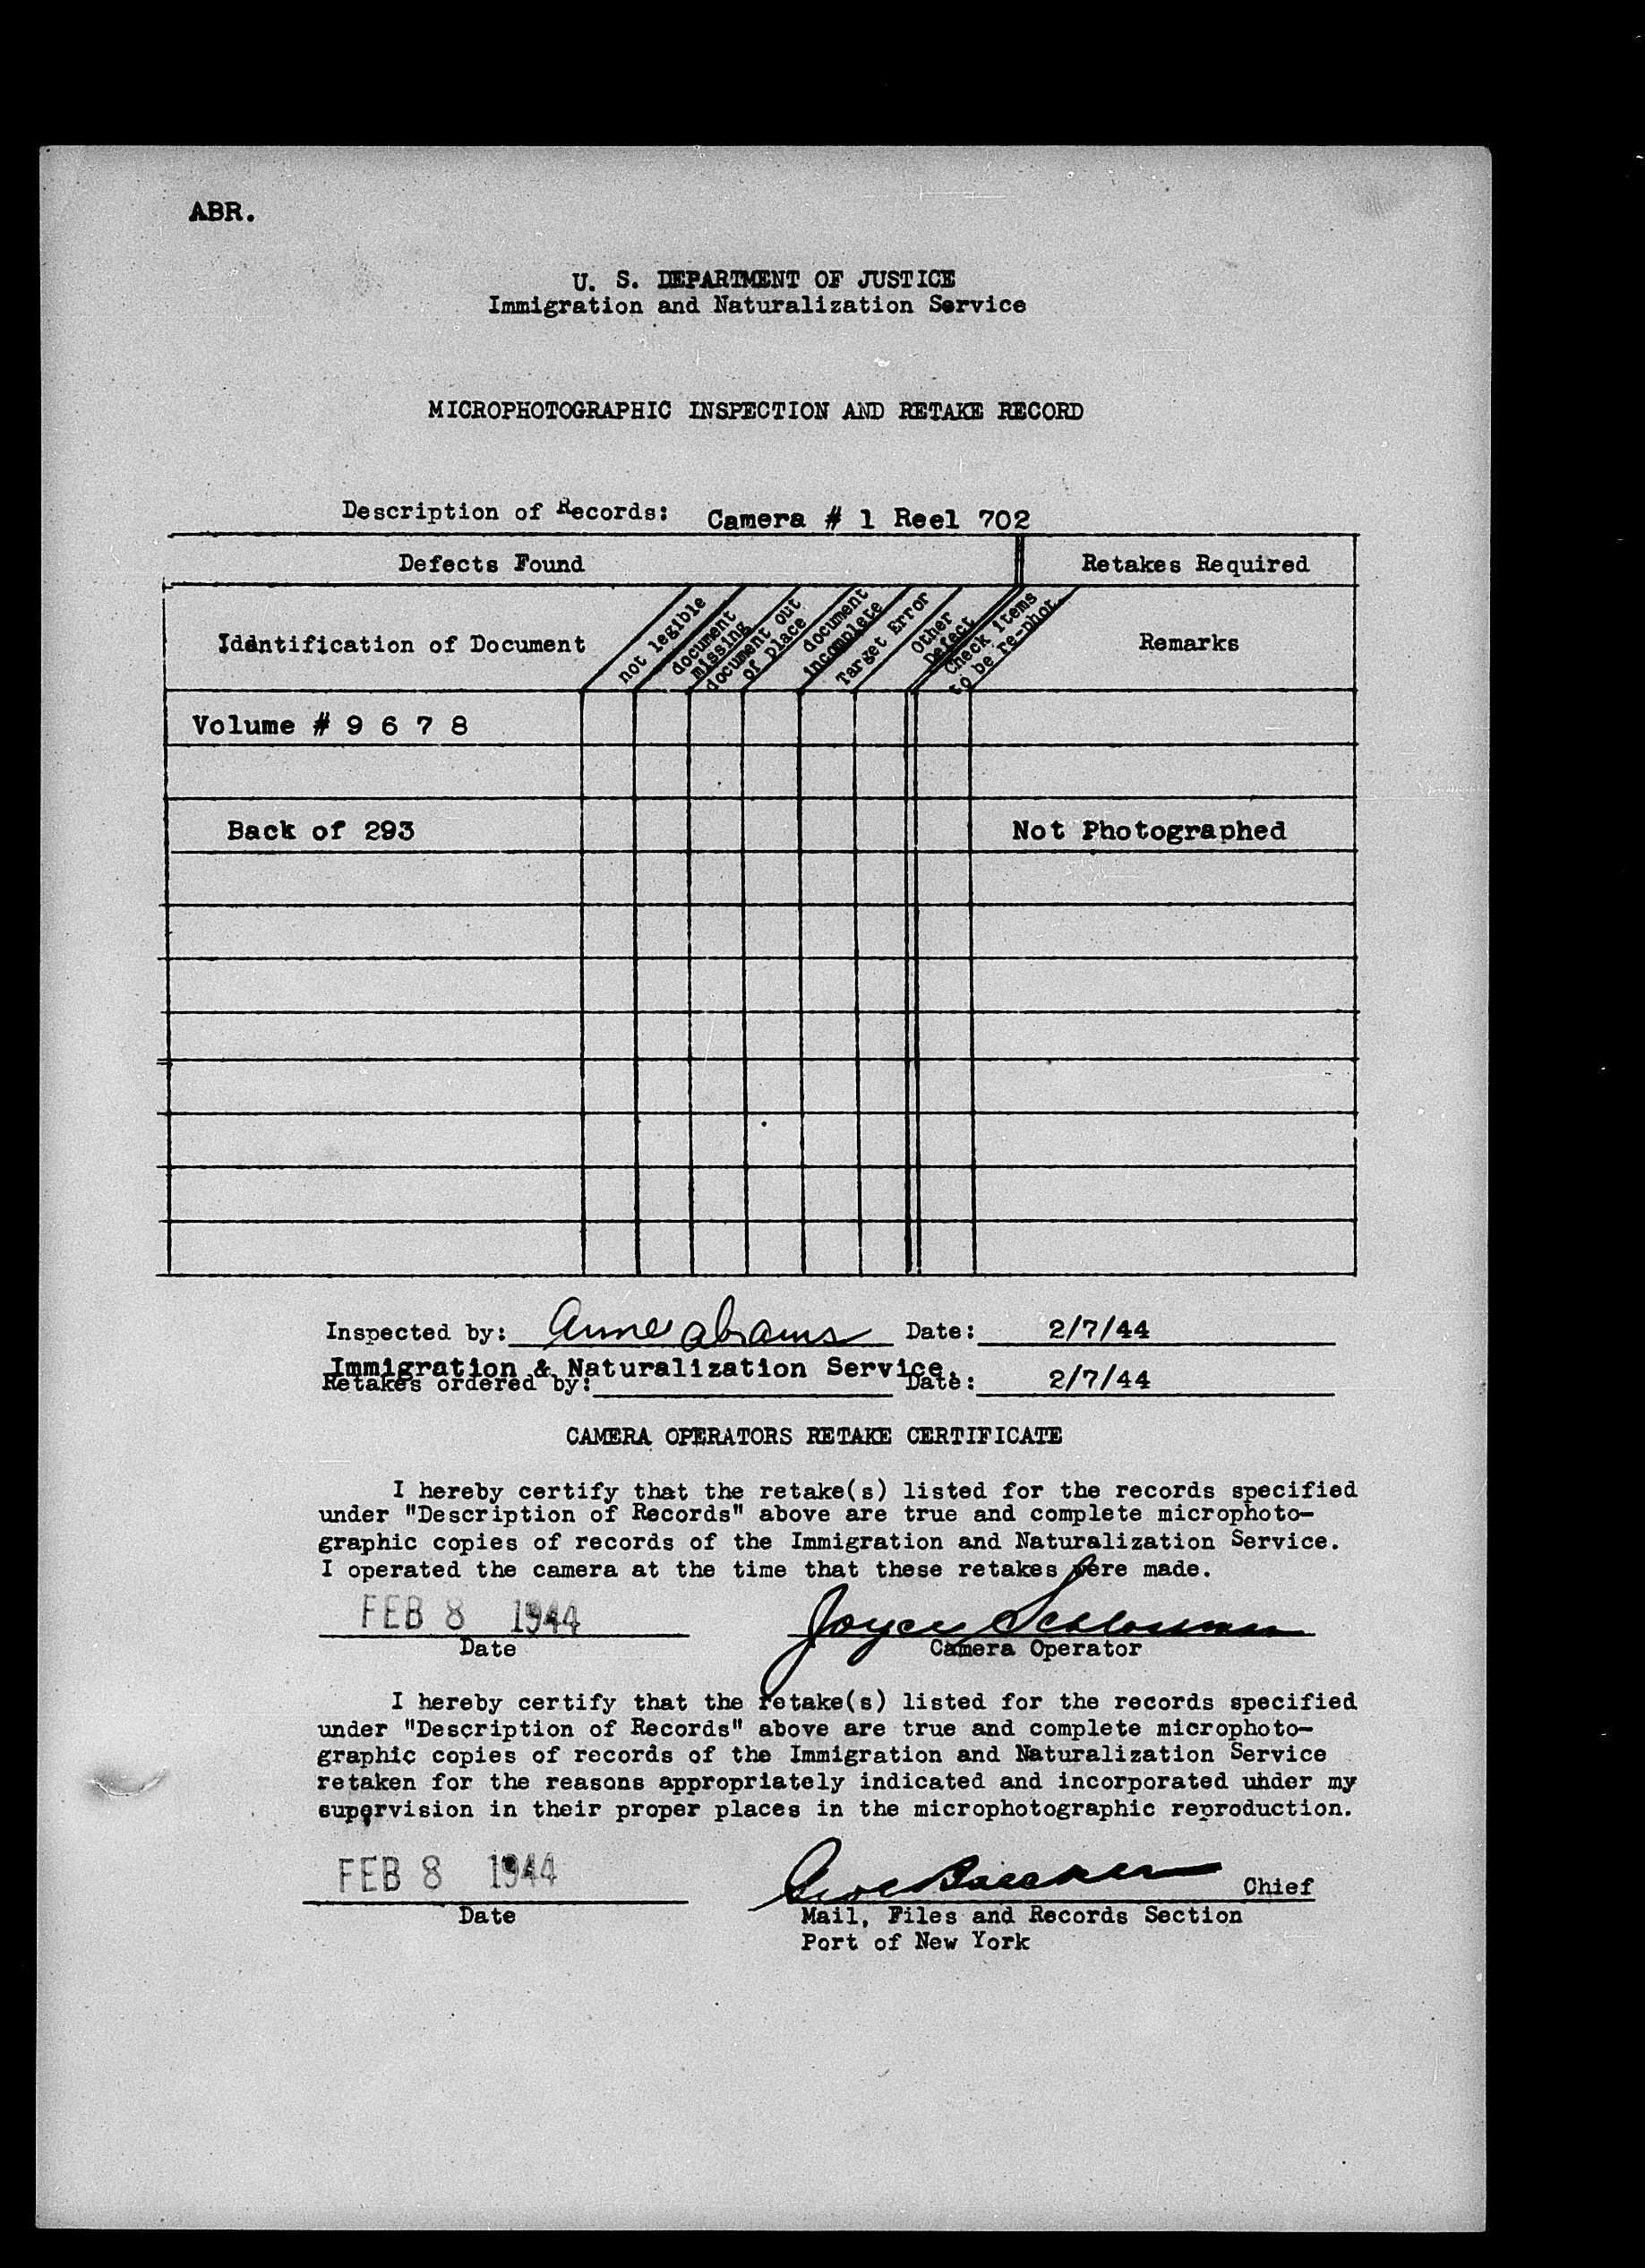 ABR.
U. S. DEPARTMENT OF JUSTICE
Immigration and Naturalization Service
MICROPHOTOGRAPHIC INSPECTION AND RETAKE RECORD
Description of Records: Camera # 1 Reel 702
Defects Found Retakes Required
Iddntification of Document
not legible
document missing
document out of place
document incomplete
Target Error
Other Defect
Check items to be re-phot.
Remarks
Volume # 9 6 7 8
Back of 293 Not Photographed
Inspected by: Anne Abrams Date: 2/7/44
Immigration & Naturalization Service.
Retakes ordered by: Date: 2/7/44
CAMERA OPERATORS RETAKE CERTIFICATE
I hereby certify that the retake(s) listed for the records specified
under "Description of Records" above are true and complete microphoto-
graphic copies of records of the Immigration and Naturalization Service.
I operated the camera at the time that these retakes were made.
FEB 8 1944 Joyce
Date Camera Operator
I hereby certify that the retake(s) listed for the records specified
under "Description of Records" above are true and complete microphoto-
graphic copies of records of the Immigration and Naturalization Service
retaken for the reasons appropriately indicated and incorporated under my
supervision in their proper places in the microphotographic reproduction.
FEB 8 1944 Chief
Date Mail, Files and Records Section
Port of New York